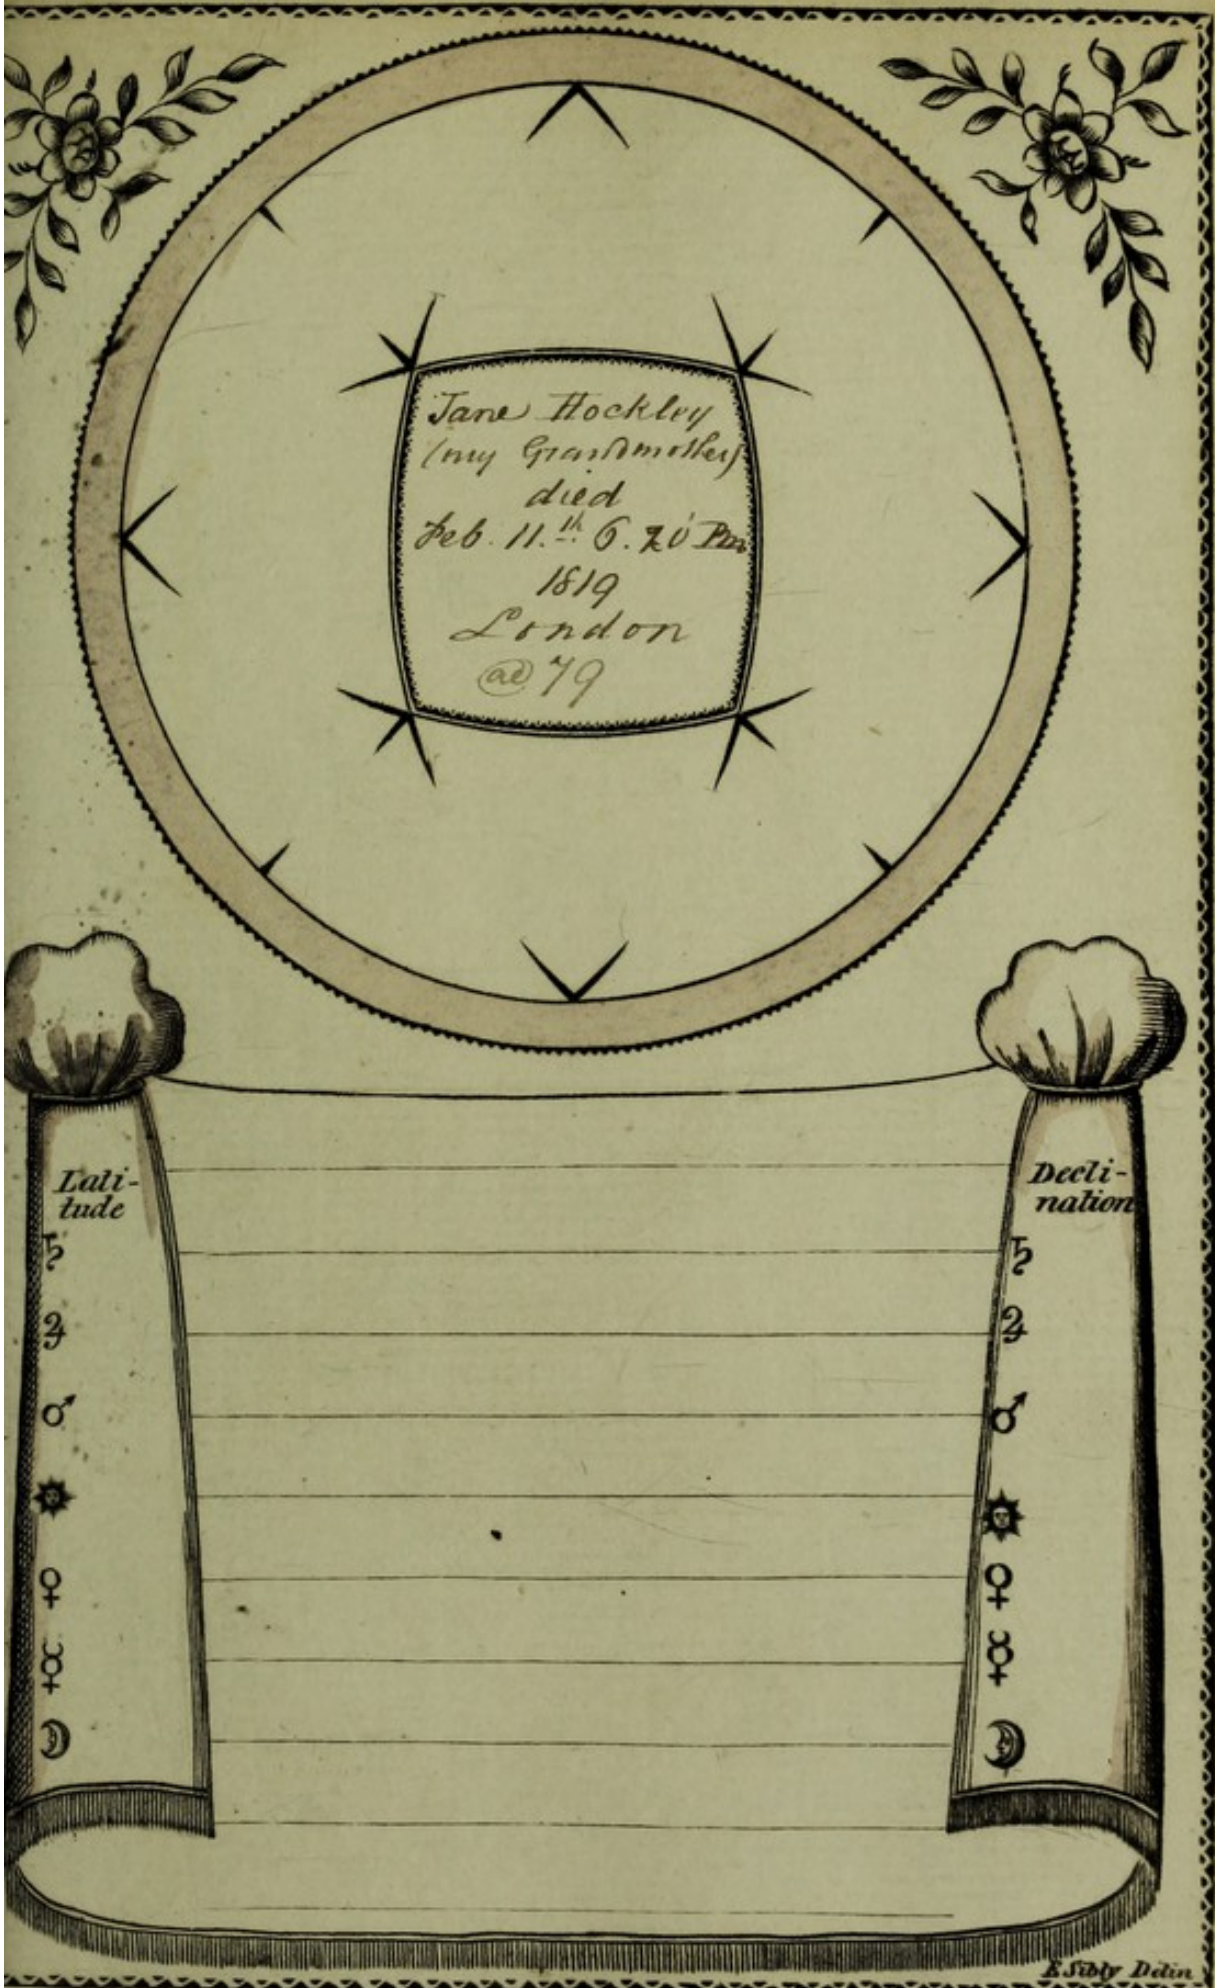 Jane Hockley
(my Grandmother)
died
Feb. 11.th 6. 20' Pm
1819
London
ae 79
Lati-
tude
♄
♃
♂
☉
♀
☿
☽
Decli-
nation
♄
♃
♂
☉
♀
☿
☽
E Sibly Delin